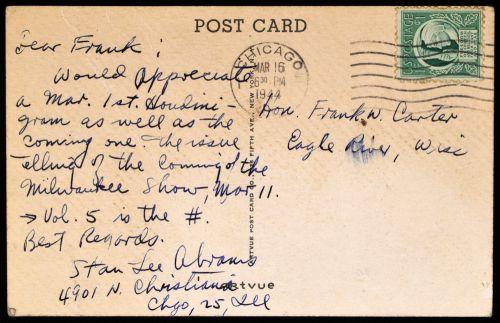 POST CARD
Dear Frank;
Would Appreciate
a Mar. 1st. Houdini-
gram as well as the
coming one - The issue
telling of the Coming of the
Milwaukee Show, Mar 11.
→ Vol. 5 is the #.
Best Regards.
Stan Lee Abrams
4901 N. Christiana
Chgo, 25, Ill
CHICAGO
MAR 16
6 30 PM
1944
Hon. Frank W. Carter
Eagle River, Wisc
ARTVUE POST CARD CO. FIFTH AVE., NEW YORK
artvue